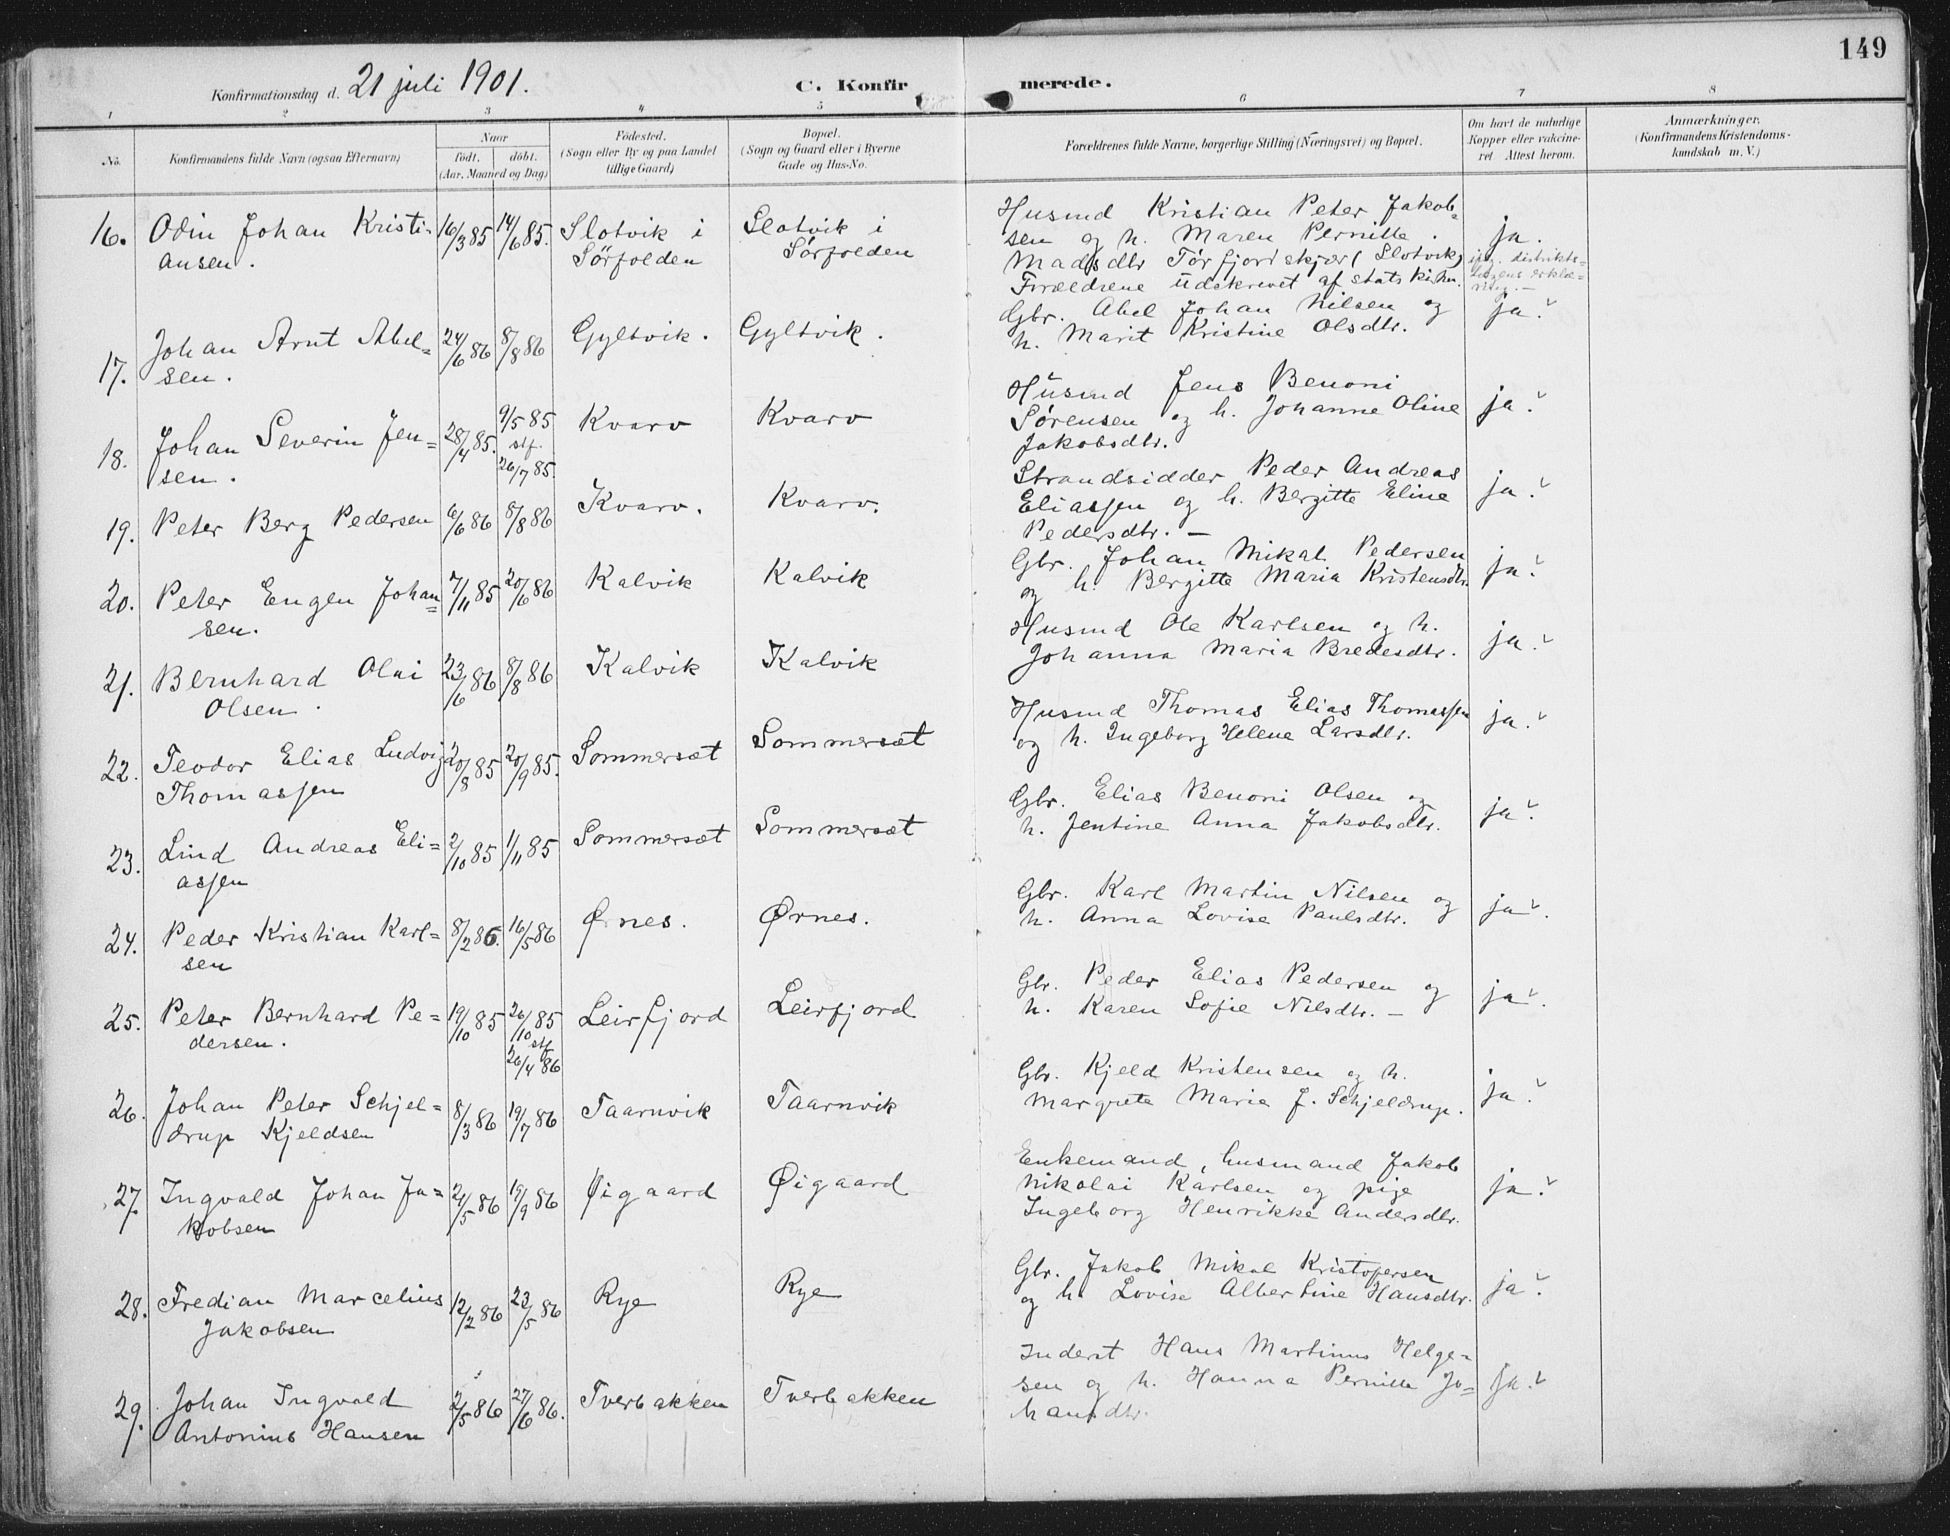 149
Konfirmationsdag d. 21 juli 1901.
C. Konfirmerede.
1 2 3 4 5 6 7 8
No.
Konfirmandens fulde Navn (ogsaa Efternavn)
Naar
födt. döbt.
(Aar, Maaned og Dag)
Födested.
(Sogn eller By og paa Landet
tillige Gaard)
Bopæl.
(Sogn og Gaard eller i Byerne
Gade og Hus-No.
Forældrenes fulde Navne, borgerlige Stilling (Næringsvei) og Bopæl.
Om havt de naturlige
Kopper eller vakcine-
ret. Attest herom.
Anmærkninger.
(Konfirmandens Kristendoms-
kundskab m. V.)
16. Odin Johan Kristi- 16/3 85 14/6 85. Slotvik i Slotvik i
ansen. Sörfolden Sörfolden
Husmd Kristian Peter Jakob-
sen og h. Maren Pernille ja.
Madsdtr Törfjordskjær (Slotvik)
Forældrene udskrevet af statskirken.
iflg. distrikts-
lægens erklæ-
ring.-
17. Johan Arnt Abel- 24/6 86 8/8 86 Gyltvik. Gyltvik.
sen.
Gbr. Abel Johan Nilsen og ja.
h. Marit Kristine Olsdtr.
18. Johan Severin Jen- 28/4 85. 9/5 85 Kvarv Kvarv
sen. stf. 26/7 85.
Husmd Jens Benoni
Sørensen og h. Johanne Oline ja.
Jakobsdtr.
19. Peter Berg Pedersen 6/6 86 8/8 86 Kvarv. Kvarv.
Strandsidder Peder Andreas
Eliassen og h. Bergitte Eline ja.
Pedersdtr. -
20. Peter Engen Johan- 7/11 85 20/6 86 Kalvik Kalvik
sen.
Gbr. Johan Mikal Pedersen ja.
og h. Bergitte Maria Kristensdtr.
21. Bernhard Olai 23/6 86 8/8 86 Kalvik Kalvik
Olsen.
Husmd Ole Karlsen og h. ja.
Johanna Maria Bredesdtr.
22. Teodor Elias Ludvig 20/8 85 20/9 85. Sommersæt Sommersæt
Thomassen
Husmd Thomas Elias Thomassen ja.
og h. Ingeborg Helene Larsdtr.
23. Lind Andreas Eli- 2/10 85 1/11 85 Sommersæt Sommersæt
assen
Gbr. Elias Benoni Olsen og ja.
h. Jentine Anna Jakobsdtr.
24. Peder Kristian Karl- 8/2 86. 16/5 86 Ørnes. Ørnes.
sen
Gbr. Karl Martin Nilsen og ja.
h. Anna Lovise Paulsdtr.
25. Peter Bernhard Pe- 19/10 85 26/10 85 Leirfjord Leirfjord
dersen. stf 26/4 86
Gbr. Peder Elias Pedersen og ja.
h. Karen Sofie Nilsdtr. -
26. Johan Peter Schjel- 8/3 86 19/7 86 Taarnvik Taarnvik
drup Kjeldsen
Gbr. Kjeld Kristensen og h. ja.
Margrete Maria J. Schjeldrup.
27. Ingvald Johan Ja- 21/5 86 19/9 86 Øigaard Øigaard
kobsen
Enkemand, husmand Jakob
Nikolai Karlsen og pige ja.
Ingeborg Henrikke Andersdtr.
28. Fredian Marcelius 12/2 86 23/5 86 Rye Rye
Jakobsen
Gbr. Jakob Mikal Kristofersen ja.
og h. Lovise Albertine Hansdtr.
29. Johan Ingvald 2/5 86 27/6 86. Tverbakken Tverbakken
Antonius Hansen
Inderst Hans Martinus Helge-
sen og h. Hanna Pernille Jo- ja.
hansdtr.